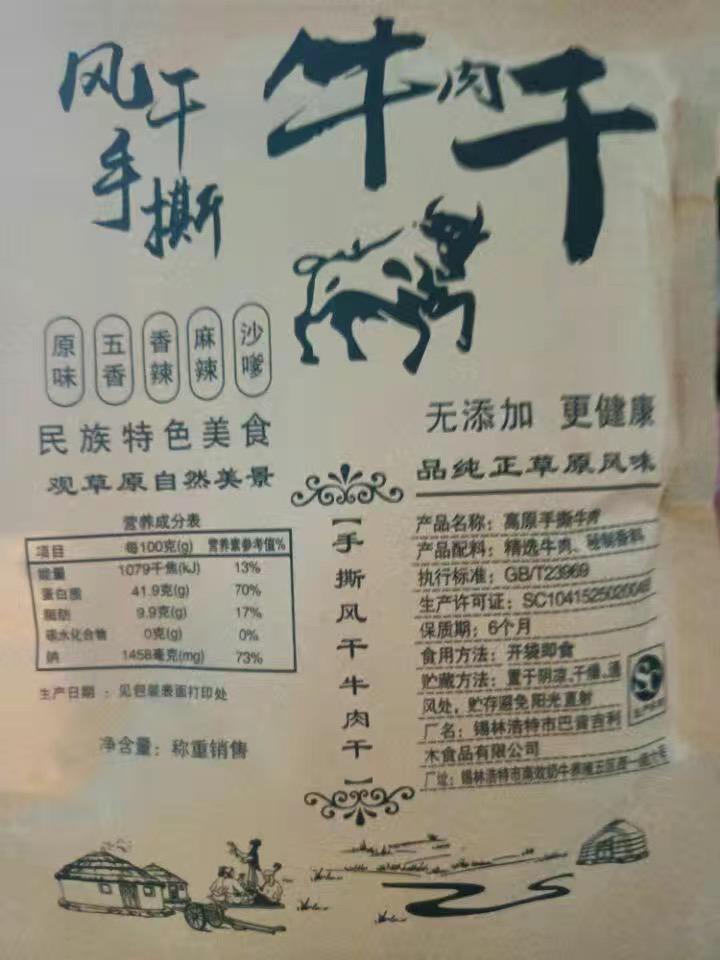 风干
手撕
牛肉干
原味
五香
香辣
麻辣
沙嗲
民族特色美食
观草原自然美景
无添加 更健康
品纯正草原风味
营养成分表
项目 每100克(g) 营养素参考值%
能量 1079千焦(kJ) 13%
蛋白质 41.9克(g) 70%
脂肪 9.9克(g) 17%
碳水化合物 0克(g) 0%
钠 1458毫克(mg) 73%
生产日期：见包装表面打印处
净含量：称重销售
【手撕风干牛肉干】
产品名称：高原手撕牛肉
产品配料：精选牛肉、秘制香料
执行标准：GB/T23969
生产许可证：
保质期：6个月
食用方法：开袋即食
贮藏方法：置于阴凉、干燥、通
风处，贮存避免阳光直射
厂名：锡林浩特市巴音吉利
木食品有限公司
厂址：锡林浩特市高效奶牛养殖五区